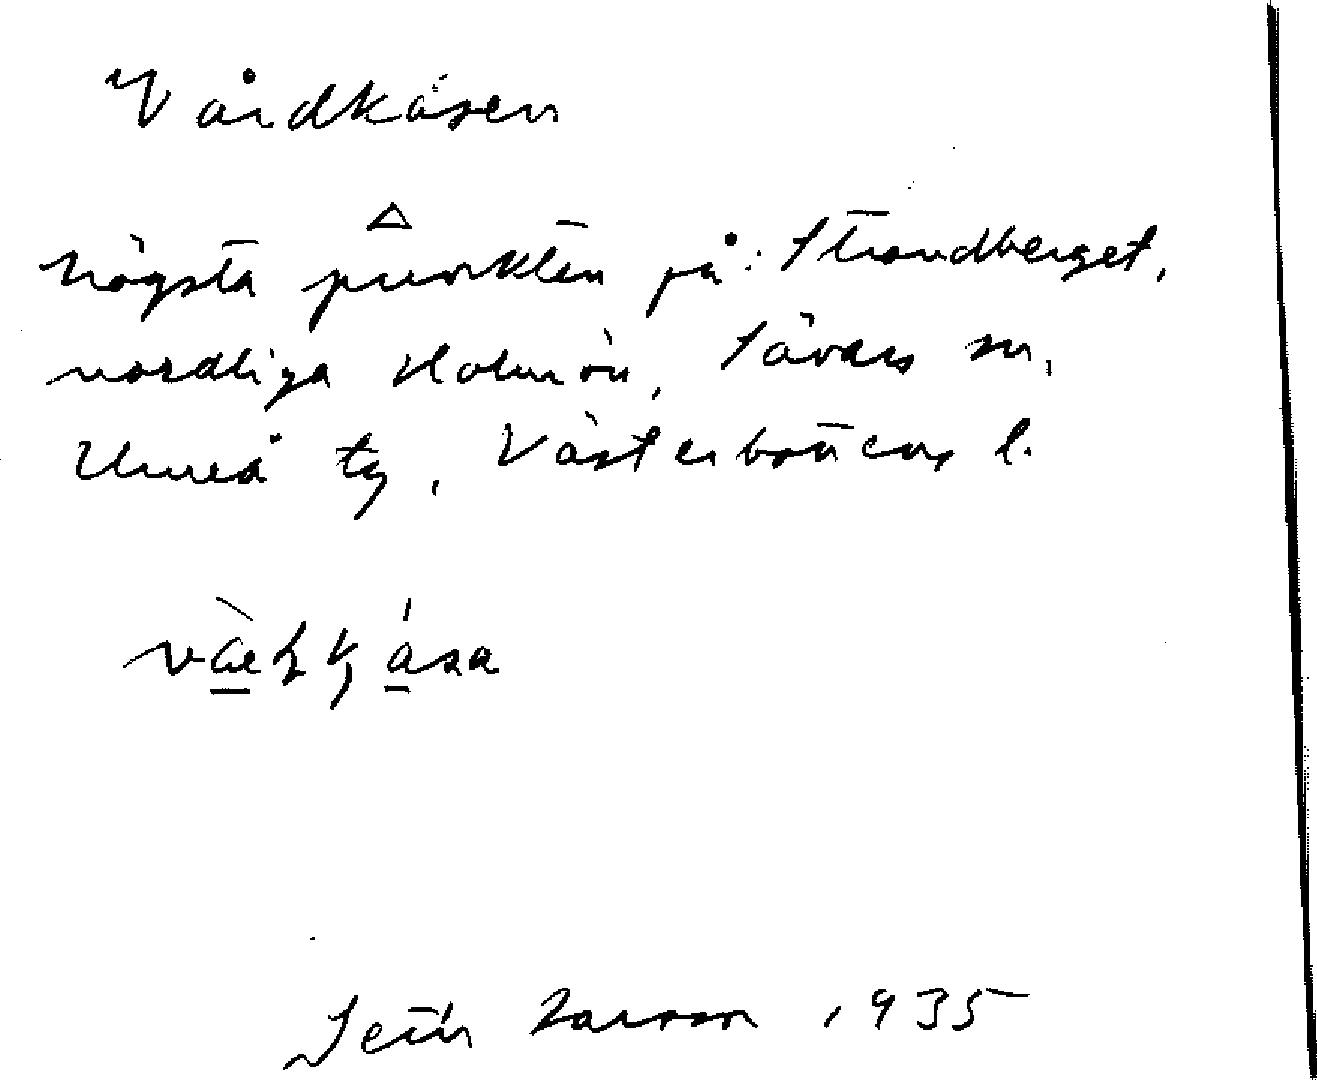 Vårdkasen
högsta punkten på Strandberget,
nordliga Holmön, Sävars sn,
Umeå tg, Västerbottens l.
Seth Larsson 1935